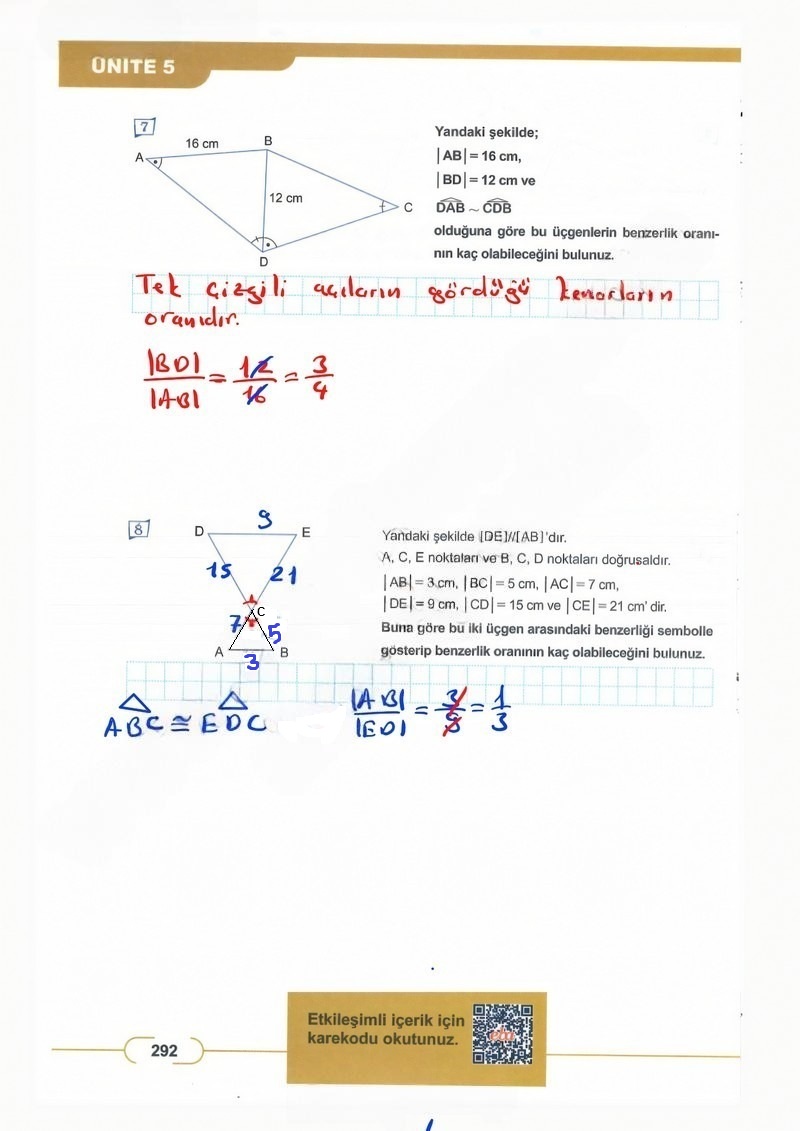 ÜNİTE 5
7
16 cm
B
A
12 cm
C
D
Yandaki şekilde;
|AB| = 16 cm,
|BD| = 12 cm ve
DAB ~ CDB
olduğuna göre bu üçgenlerin benzerlik oranı-
nın kaç olabileceğini bulunuz.
Tek çizgili açıların gördüğü kenarların
oranıdır.
|BD| / |AB| = 12 / 16 = 3 / 4
8
D
9
E
15
21
C
7
5
A
3
B
Yandaki şekilde [DE]//[AB]'dır.
A, C, E noktaları ve B, C, D noktaları doğrusaldır.
|AB| = 3 cm, |BC| = 5 cm, |AC| = 7 cm,
|DE| = 9 cm, |CD| = 15 cm ve |CE| = 21 cm' dir.
Buna göre bu iki üçgen arasındaki benzerliği sembolle
gösterip benzerlik oranının kaç olabileceğini bulunuz.
ABC ≅ EDC
|AB| / |ED| = 3 / 9 = 1 / 3
Etkileşimli içerik için
karekodu okutunuz.
eba
292